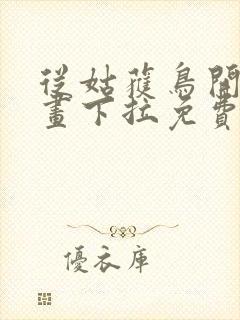 從姑蔋鳥開
畫下拉免費
優衣庫